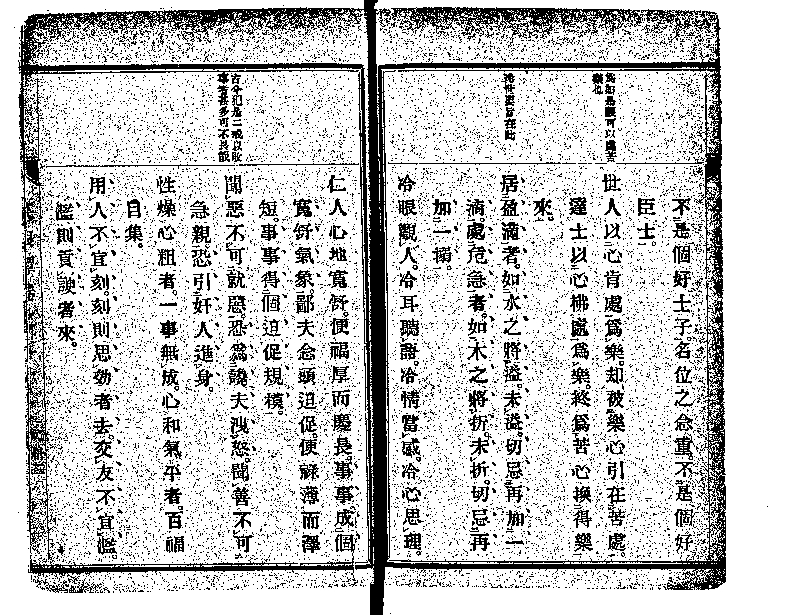 為如是觀可以處苦
樂也
涉世要旨在此
不是個好士子名位之念重不是個好
臣士。
世人以心肯處爲樂却被樂心引在苦處。
達士以心拂處爲樂終爲苦心換得樂
來。
居盈滿者如水之將溢未溢切忌再加一
滴處危急者如木之將折未折切忌再
加一搦。
冷眼觀人冷耳聽語冷情當感冷心思理。
古今犯是二戒以敗
事者甚多可不長
仁人心地寬舒便福厚而慶長事事成個
寬舒氣象鄙夫念頭迫促便祿薄而澤
短事事得個迫促規模。
聞惡不可就惡恐爲讒夫洩怒聞善不可
急親恐引奸人進身。
性燥心粗者一事無成心和氣平者百福
自集。
用人不宜刻刻則思効者去交友不宜濫
濫則貢諛者來。